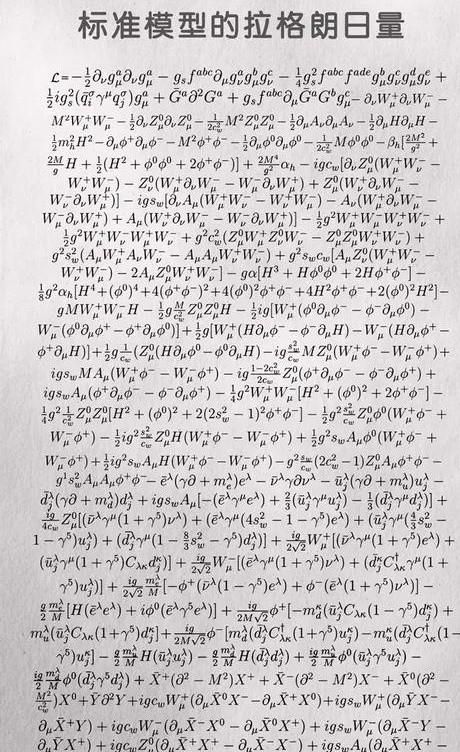 标准模型的拉格朗日量
ℒ=−½∂_νg^a_μ∂_νg^a_μ − g_s f^{abc}∂_μg^a_νg^b_μg^c_ν − ¼g²_s f^{abc}f^{ade}g^b_μg^c_νg^d_μg^e_ν +
½ig²_s(q̄^σ_iγ^μq^σ_j)g^a_μ + Ḡ^a∂²G^a + g_s f^{abc}∂_μḠ^aG^bg^c_μ − ∂_νW^+_μ∂_νW^-_μ −
M²W^+_μW^-_μ − ½∂_νZ^0_μ∂_νZ^0_μ − 1/(2c²_w) M²Z^0_μZ^0_μ − ½∂_μA_ν∂_μA_ν − ½∂_μH∂_μH −
½m²_hH² − ∂_μφ^+∂_μφ^- − M²φ^+φ^- − ½∂_μφ^0∂_μφ^0 − 1/(2c²_w) Mφ^0φ^0 − β_h[2M²/g² +
2M/g H + ½(H² + φ^0φ^0 + 2φ^+φ^-)] + 2M⁴/g² α_h − igc_w[∂_νZ^0_μ(W^+_μW^-_ν −
W^+_νW^-_μ) − Z^0_ν(W^+_μ∂_νW^-_μ − W^-_μ∂_νW^+_μ) + Z^0_μ(W^+_ν∂_νW^-_μ −
W^-_ν∂_νW^+_μ)] − igs_w[∂_νA_μ(W^+_μW^-_ν − W^+_νW^-_μ) − A_ν(W^+_μ∂_νW^-_μ −
W^-_μ∂_νW^+_μ) + A_μ(W^+_ν∂_νW^-_μ − W^-_ν∂_νW^+_μ)] − ½g²W^+_μW^-_μW^+_νW^-_ν +
½g²W^+_μW^-_νW^+_μW^-_ν + g²c²_w(Z^0_μW^+_μZ^0_νW^-_ν − Z^0_μZ^0_μW^+_νW^-_ν) +
g²s²_w(A_μW^+_μA_νW^-_ν − A_μA_μW^+_νW^-_ν) + g²s_wc_w[A_μZ^0_ν(W^+_μW^-_ν −
W^+_νW^-_μ) − 2A_μZ^0_μW^+_νW^-_ν] − gα[H³ + Hφ^0φ^0 + 2Hφ^+φ^-] −
⅛g²α_h[H⁴+(φ^0)⁴+4(φ^+φ^-)²+4(φ^0)²φ^+φ^-+4H²φ^+φ^-+2(φ^0)²H²] −
gMW^+_μW^-_μH − ½g M/c²_w Z^0_μZ^0_μH − ½ig[W^+_μ(φ^0∂_μφ^- − φ^-∂_μφ^0) −
W^-_μ(φ^0∂_μφ^+ − φ^+∂_μφ^0)] + ½g[W^+_μ(H∂_μφ^- − φ^-∂_μH) − W^-_μ(H∂_μφ^+ −
φ^+∂_μH)] + ½g 1/c_w (Z^0_μ(H∂_μφ^0 − φ^0∂_μH) − ig s²_w/c_w MZ^0_μ(W^+_μφ^- − W^-_μφ^+) +
igs_wMA_μ(W^+_μφ^- − W^-_μφ^+) − ig (1−2c²_w)/(2c_w) Z^0_μ(φ^+∂_μφ^- − φ^-∂_μφ^+) +
igs_wA_μ(φ^+∂_μφ^- − φ^-∂_μφ^+) − ¼g²W^+_μW^-_μ[H² + (φ^0)² + 2φ^+φ^-] −
¼g² 1/c²_w Z^0_μZ^0_μ[H² + (φ^0)² + 2(2s²_w − 1)²φ^+φ^-] − ½g² s²_w/c_w Z^0_μφ^0(W^+_μφ^- +
W^-_μφ^+) − ½ig² s²_w/c_w Z^0_μH(W^+_μφ^- − W^-_μφ^+) + ½g²s_wA_μφ^0(W^+_μφ^- +
W^-_μφ^+) + ½ig²s_wA_μH(W^+_μφ^- − W^-_μφ^+) − g² s_w/c_w (2c²_w − 1)Z^0_μA_μφ^+φ^- −
g¹s²_wA_μA_μφ^+φ^- − ē^λ(γ∂ + m^λ_e)e^λ − ν̄^λγ∂ν^λ − ū^λ_j(γ∂ + m^λ_u)u^λ_j −
d̄^λ_j(γ∂ + m^λ_d)d^λ_j + igs_wA_μ[−(ē^λγ^μe^λ) + ⅔(ū^λ_jγ^μu^λ_j) − ⅓(d̄^λ_jγ^μd^λ_j)] +
ig/(4c_w) Z^0_μ[(ν̄^λγ^μ(1 + γ⁵)ν^λ) + (ē^λγ^μ(4s²_w − 1 − γ⁵)e^λ) + (ū^λ_jγ^μ(4/3 s²_w −
1 − γ⁵)u^λ_j) + (d̄^λ_jγ^μ(1 − 8/3 s²_w − γ⁵)d^λ_j)] + ig/(2√2) W^+_μ[(ν̄^λγ^μ(1 + γ⁵)e^λ) +
(ū^λ_jγ^μ(1 + γ⁵)C_{λκ}d^κ_j)] + ig/(2√2) W^-_μ[(ē^λγ^μ(1 + γ⁵)ν^λ) + (d̄^κ_jC^†_{λκ}γ^μ(1 +
γ⁵)u^λ_j)] + ig/(2√2) m^λ_e/M [−φ^+(ν̄^λ(1 − γ⁵)e^λ) + φ^-(ē^λ(1 + γ⁵)ν^λ)] −
g/2 m^λ_e/M [H(ē^λe^λ) + iφ^0(ē^λγ⁵e^λ)] + ig/(2M√2) φ^+[−m^κ_d(ū^λ_jC_{λκ}(1 − γ⁵)d^κ_j) +
m^λ_u(ū^λ_jC_{λκ}(1 + γ⁵)d^κ_j] + ig/(2M√2) φ^-[m^λ_d(d̄^λ_jC^†_{λκ}(1 + γ⁵)u^κ_j) − m^κ_u(d̄^λ_jC^†_{λκ}(1 −
γ⁵)u^κ_j] − g/2 m^λ_u/M H(ū^λ_ju^λ_j) − g/2 m^λ_d/M H(d̄^λ_jd^λ_j) + ig/2 m^λ_u/M φ^0(ū^λ_jγ⁵u^λ_j) −
ig/2 m^λ_d/M φ^0(d̄^λ_jγ⁵d^λ_j) + X̄^+(∂² − M²)X^+ + X̄^-(∂² − M²)X^- + X̄^0(∂² −
M²/c²_w)X^0 + Ȳ∂²Y + igc_wW^+_μ(∂_μX̄^0X^- − ∂_μX̄^+X^0) + igs_wW^+_μ(∂_μȲX^- −
∂_μX̄^+Y) + igc_wW^-_μ(∂_μX̄^-X^0 − ∂_μX̄^0X^+) + igs_wW^-_μ(∂_μX̄^-Y −
∂_μȲX^+) + igc_wZ^0_μ(∂_μX̄^+X^+ − ∂_μX̄^-X^-) + igs_wA_μ(∂_μX̄^+X^+ −